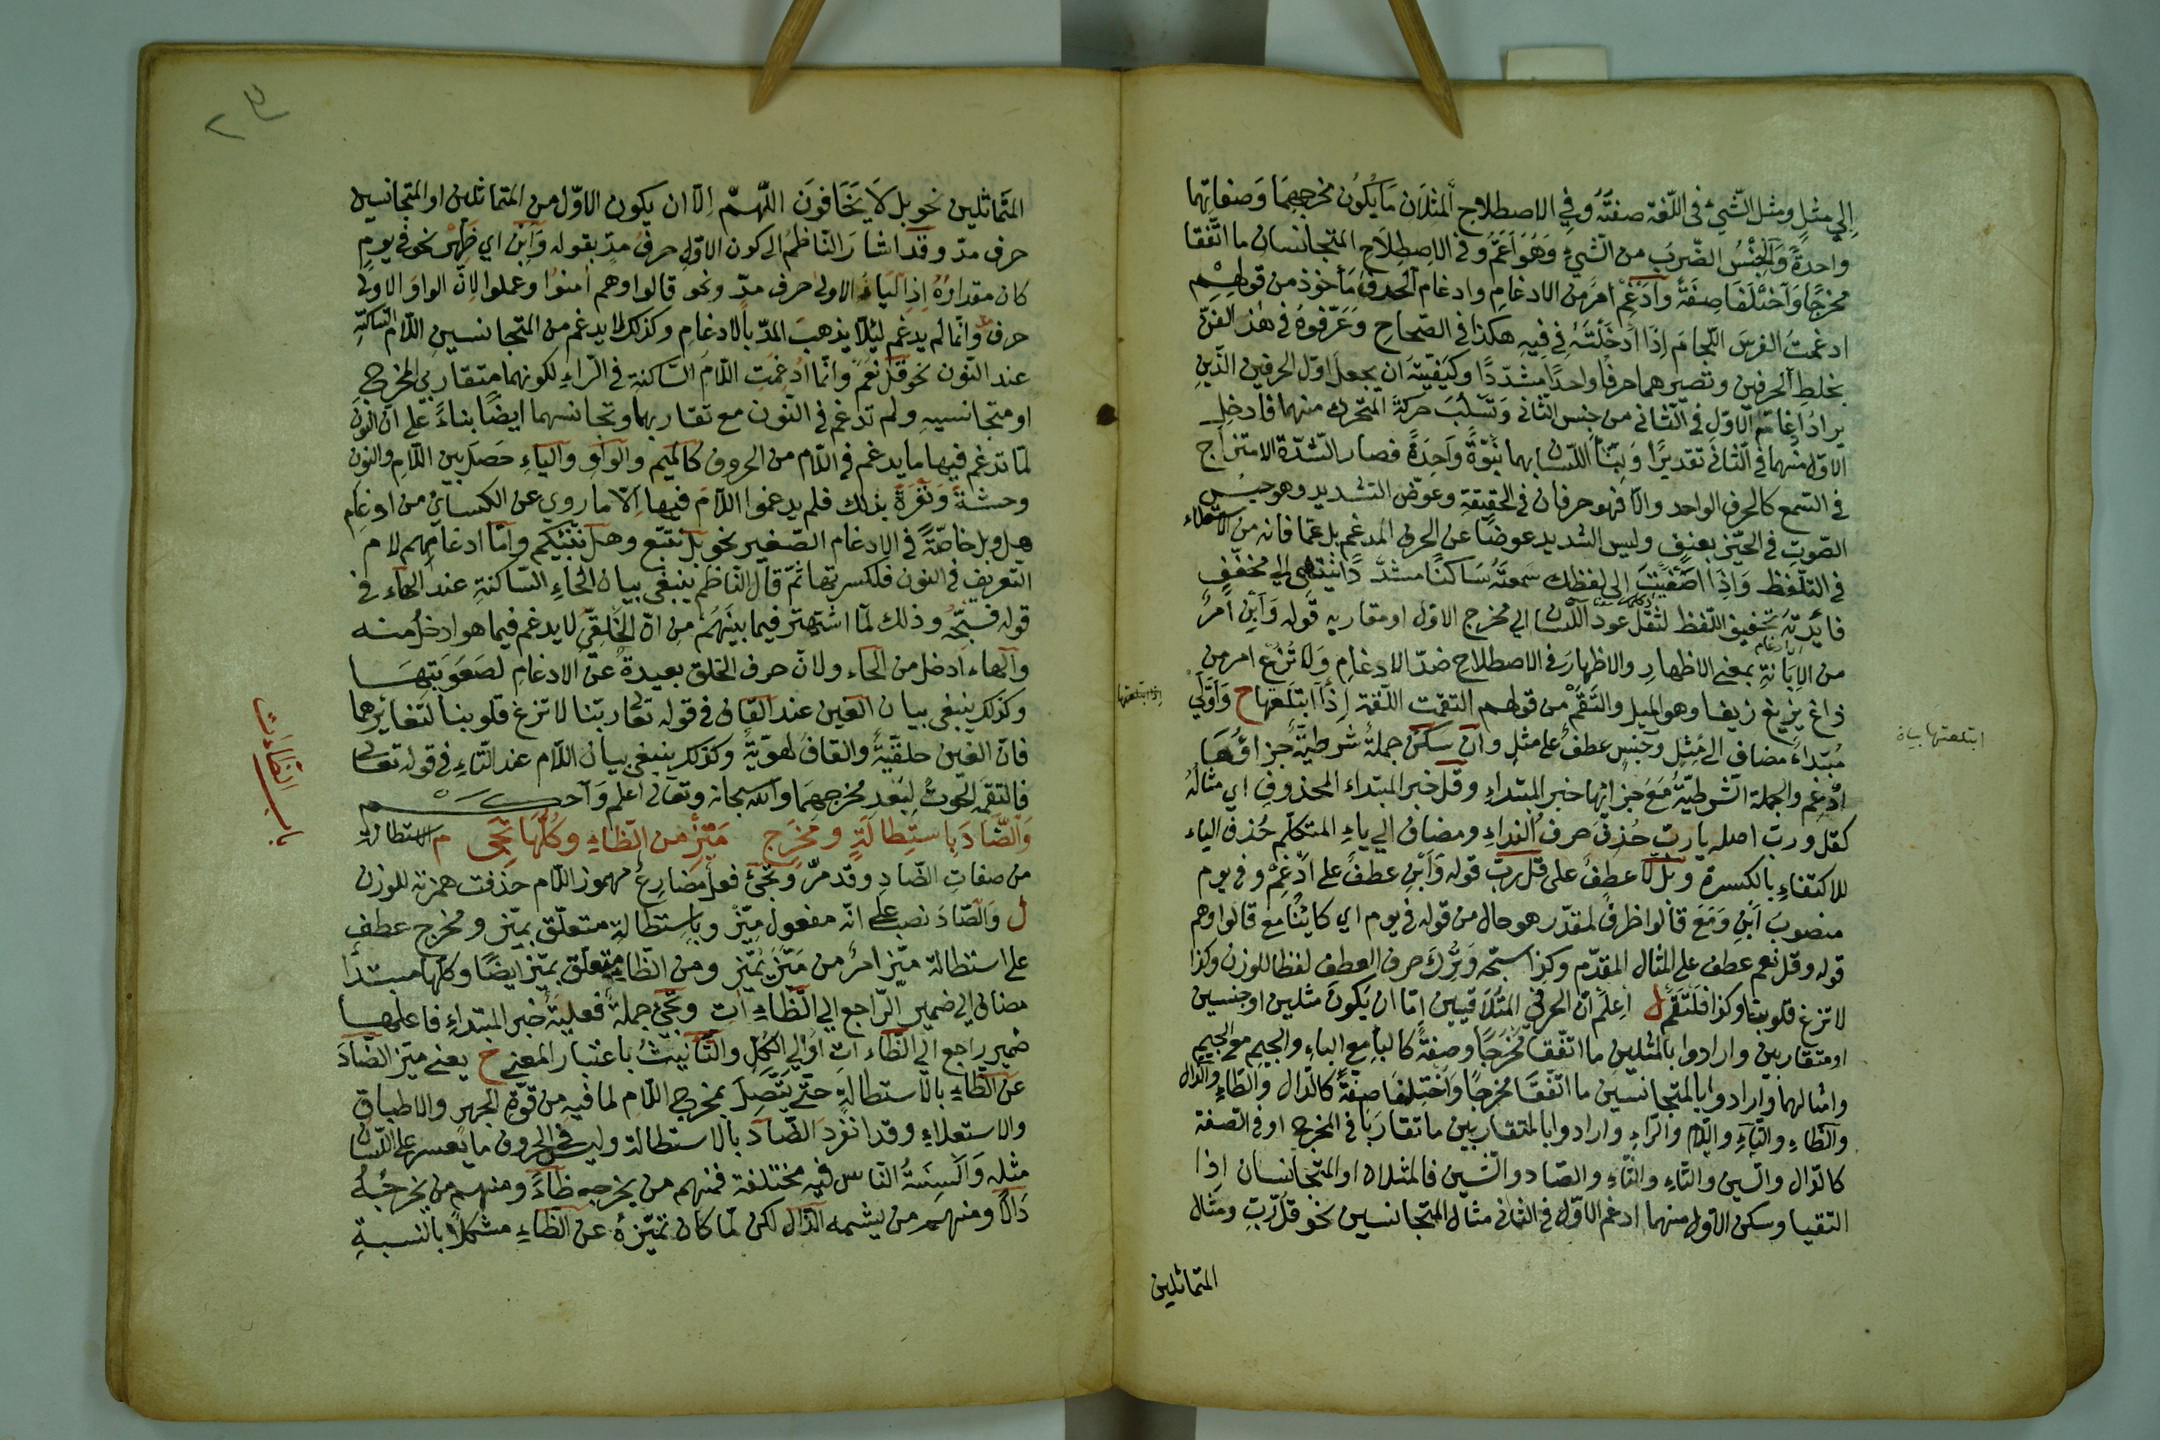 إلى مثلٍ ومثل الشّئ فى اللّغة صفتَهُ وفِي الاصطلاح ألمثلَان مَا يَكُون مخرجهمَا وَصفاتهما
واحدةً وَالجِنْسُ الضّربَ من الشّيءِ وَهُوَ اَعَمُّ وفى الاِصطِلَاحِ المتجانسان ما اتّفقا
مخرجًا وَاَخْتَلَفَا صِفَةً وَأدْغِمْ امرٌ من الادغامِ وادغام الحرف مَأخوذ من قولهِمْ
ادغمتُ الفرسَ اللّجامَ إذَا أدْخَلْتَهُ فِي فِيهِ هكذا فى الصّحاحِ وَعَرّفوهُ فى هذ الفنّ
بخلط الحرفين وتصيرهما حرفًا واحدًا مشدّدًا وكيَفيّتَه ان يجعلَ اوّل الحرفين الّذينِ
يرادُ اِدغامُ الاَوّلِ فى الثّانى من جنسِ الثّانى وَتَسلبَ حركةَ المتحرك منهما فادخل
الاوّل منهما فى الثّانى تقديرًا وَيَنبَأ اللّسان بهما نَبْوَةً وَاحِدَةً فصار الشّدّة الامتزاج
فى السّمع كالحرف الواحد والّا فهو حرفان فى الحقيقةِ وعوّض التشديد وهو حبسُ
الصّوتِ فى الحيّز بعنفٍ وليس التشديد عوضًا عن الحرف المدغم بل عمّا فاته من الاستقلاء
فى التلّفظ وَإذَا اصْغَيْتَ إلى لفظك سَمعتَهُ سَاكنًا مشدّدًا ينتهى إلى مخفّفٍ
فائدتَه تخفيف اللّفظ لثقل عود اللّسان إلى مخرج الاوّل او مقاربه قوله وَاَبِنْ امرٌ
من الاِبَانَةِ بمعنى الاظهارِ والاظهارَ فى الاصطلاح ضدّ الادغامِ وَلا تُزِغْ امر من
زاغ يزيغ زيغا وهو الميل والتَقَمْ من قولهم التقمت اللّقمة إذَا ابتلعتها ح وَاوّلَيْ
مُبتداءٌ مضاف الى مثلٍ وَجنسٍ عطفٌ على مثلٍ وان سَكَن جملةٌ شرطيّةٌ جزاؤُهَا
ادْغِمْ والجملة الشّرطيّةُ مَعَ جزائها خبر المبتداءِ وقل خبر المبتداء المحذوفِ اي مثالُهُ
كقل ورب اصله ياربّ حُذِفَ حرفُ النداءِ ومضاف الي ياءِ المتكلّم حُذف الياء
للاكتفاءِ بالكسرة وبل لا عطفٌ على قل ربّ قوله وَأَبِنْ عطفٌ على أدْغِمْ وفى يوم
منصوب اَبِنْ وَمَعَ قالوا ظرفٌ لمقدّر هو حال من قوله فى يوم اي كائنًا مع قالوا وهم
قوله وقل نعم عطف على المثال المقدّم وكذا سبّحه وَتُرِكَ حرف العطف لفظًا للوزن وكذا
لا تزغ قلوبنا وكذا فلتقم ل اعلم انّ الحرفي المتُلاقيين إمّا ان يكونَ مثلين او جنسين
او متقاربين وارادوا بالمثلين ما اتّفقا مخرَجًا وصفةً كالباءِ مع الباءِ والجيم مع الجيم
وامثالهما وارادوا بالمتجانسين ما اتّفقَا مخرجًا وَاختلفا صفةً كالدّال والطّاءِ والدّال
والظّاءِ والثّاءِ واللّام والرّاءِ وارادوا بالمتقاربين ما تقاربَا فى المخرج او فى الصّفة
كالدّال والسّين والثّاءِ والتّاءِ والضّاد والشّين فالمثلان او المتجانسان إذا
التقيا وسكن الاوّل منهما ادغم الاوّل فى الثانى مثال المتجانسين نحو قل رّبّ ومثال
المتماثلين
إذا ابتلعتها
ابتلعتها بيان
المتَماثلين نحو بل لَا يَخَافونَ اللّهمّ إلّا ان يكون الاوّل من المتماثلين او المتجانسين
حرف مدّ وقد اشارَ النّاظمُ الى كون الاوّلِ حرفُ مدٍ بقوله وَاَبِنْ اي ظهِّرْ نحو فى يومٍ
كان مقدارُهُ إذِ الياءُ الاولىٰ حرف مدّ ونحو قالوا وهم اٰمنوا وعملوا لانّ الواوَ الاولىٰ
حرف مدٍّ وانّما لم يدغم لئِلّا يذهبَ المدّ بالادغامِ وكذلك لا يدغم من المتجانسينِ اللّام السّاكنة
عند النّون نحو قُلْ نَعَمْ وانّما اُدغِمتِ اللّام السّاكنة فى الرّاءِ لكونهما متقاربي المخرج
او متجانسيه ولم تدغم فى النّون مع تقاربهما وتجانسهما ايضًا بناءً على انّ النونَ
لمّا تدغم فيها ما يدغم فى اللّام من الحروف كالميم والواوِ والياءِ حَصَلَ بين اللّامِ والنونِ
وحشةٌ وَنَفرةٌ بذلك فلم يدغموا اللّامَ فيها اِلّا ما روي عن الكسائىِ من ادغامِ
هل وبل خاصّةً فى الادغام الصّغيرِ نحو بل نتبع وهل ننبّئكم وامّا ادغامهم لام
التّعريف فى النونِ فلكسرتها ثمّ قال النّاظم ينبغى بيان الحاءِ السّاكنةِ عند الهاء فى
قوله فسبّحهُ وذلك لمّا اشتهر فيما بينهُم من انّ الحَلقِىَّ لا يدغم فيما هو ادخلُ منه
والهاء ادخل من الحاء ولانّ حرف الحلق بعيدةٌ عن الادغامِ لصعوبتِهَا
وكذلك ينبغى بيان الغين عند القاف فى قوله تعالى ربّنا لا تزغ قلوبنا لتغايرهما
فانّ الغين حلقيّةٌ والقافُ لهويّةٌ وكذلك ينبغى بيان اللّام عند التّاءِ فى قوله تعالى
فالتقمه الحوتُ لبُعدِ مخرجهمَا والله سبحانه وتعالىٰ اعلم وَاَحكم
وَالضّادَ بِاستِطالَةٍ وَمَخرَجِ مَيّزْ مِنَ الظّاءِ وَكُلُّهَا تَجَى م الاستطالة
من صفاتِ الضّادِ وقد مرّ وتَجئ فعلٌ مُضارِعٌ مهموز اللّام حذفت همزته للوزن
ل وَالضّادَ نصب على انّه مفعول ميّزْ وباستطالةٍ متعلّق بميّز ومخرج عطف
على استطالة ميّز امرٌ من مَيّز يُميّز ومن الظّاءِ متعلّق بميّز ايضًا وكلّها مبتدأٌ
مضاف الي ضمير الرّاجع الي الظّاءِ اٰتِ وتَجئ جملةٌ فعليةٌ خبر المبتداءِ فاعلها
ضمير راجع الي الظّاء اٰتِ او الي الكلّ والتّأنيثُ باعتبار المعنى ح يعنى ميّز الضّادَ
عن الظّاءِ بالاستطالةِ حتّى يتّصِلَ بمخرج اللّام لما فيه من قوّةِ الجهرِ والاطباق
والاستعلاءِ وقد انفردَ الضّادُ بالاستطالة وليس فى الحروف ما يعسر على اللّسانِ
مثله وَاَلسِنَةُ النّاس فيهِ مختلفة فمنهم من يخرجه ظاءً ومنهم من يخرجُهُ
دَالًا ومنهم من يشمه الذّال لكن لمّا كان تميّزهُ عن الظّاءِ مشكلًا بالنسبةِ
باب الظاءات